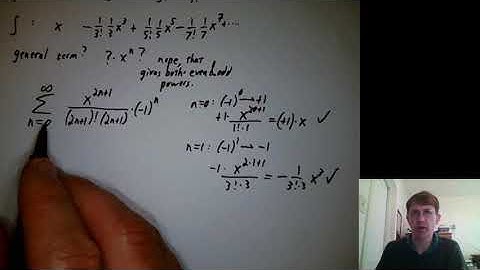 ∫ : x - 1/3! 1/3 x³ + 1/5! 1/5 x⁵ - 1/7! 1/7 x⁷ + ...
general term? ?·xⁿ? nope, that
gives both even & odd
powers.
∞
∑ x²ⁿ⁺¹/((2n+1)!(2n+1)) · (-1)ⁿ
n=0
n=0: (-1)⁰ → +1
+1 · x²·⁰⁺¹/(1!·1) = (+1)·x ✓
n=1: (-1)¹ → -1
-1 · x²·¹⁺¹/(3!·3) = - 1/(3!·3) x³ ✓